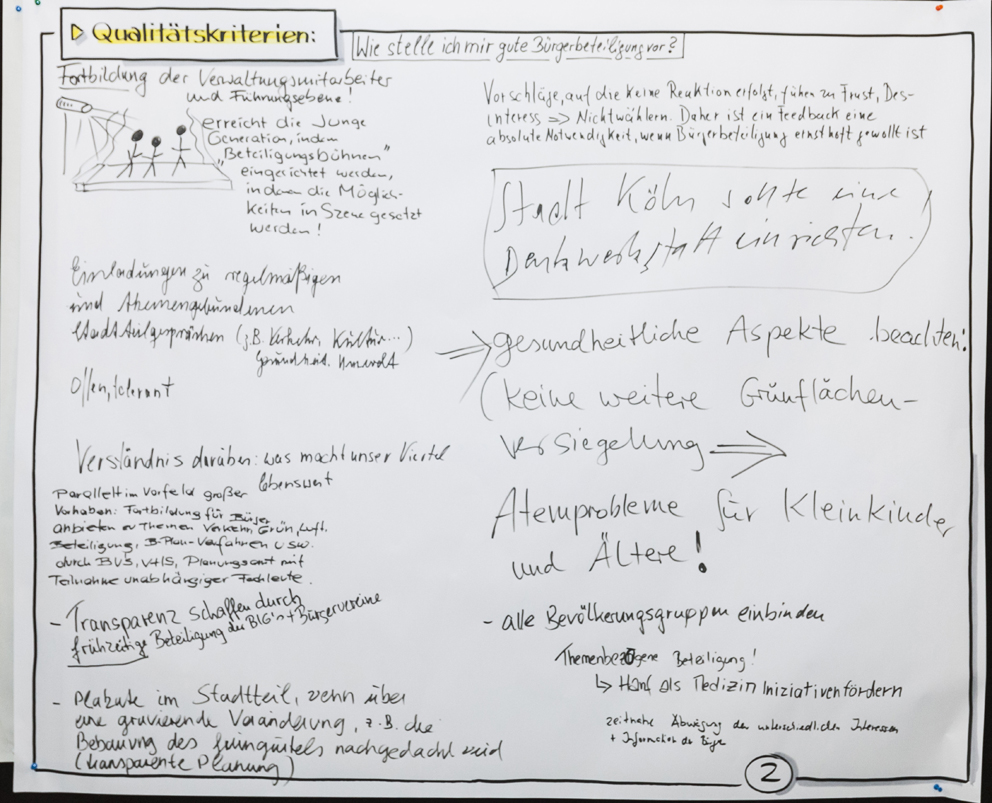 Qualitätskriterien:
Wie stelle ich mir gute Bürgerbeteiligung vor?
Fortbildung der Verwaltungsmitarbeiter
und Führungsebene!
erreicht die Junge
Generation, indem
"Beteiligungsbühnen"
eingerichtet werden,
in denen die Möglich-
keiten in Szene gesetzt
werden!
Einladungen zu regelmäßigen
und themengebundenen
Stadtteilgesprächen (z.B. Verkehr, Kultur...)
Gesundheit, Umwelt
Offen, tolerant
Verständnis darüber: was macht unser Viertel
lebenswert
Parallel + im Vorfeld großer
Vorhaben: Fortbildung für Bürger
anbieten zu Themen Verkehr, Grün, Luft,
Beteiligung, B-Plan-Verfahren usw.
durch VHS, Planungsamt mit
Teilnahme unabhängiger Fachleute.
- Transparenz schaffen durch
frühzeitige Beteiligung der BIG'n + Bürgervereine
- Plakate im Stadtteil, wenn über
eine gravierende Veränderung, z.B. die
Bebauung des Grüngürtels nachgedacht wird
(transparente Planung)
Vorschläge, auf die keine Reaktion erfolgt, führen zu Frust, Des-
interess => Nichtwählern. Daher ist ein Feedback eine
absolute Notwendigkeit, wenn Bürgerbeteiligung ernsthaft gewollt ist
Stadt Köln sollte eine
Denkwerkstatt einrichten.
=> gesundheitliche Aspekte beachten:
(keine weitere Grünflächen-
versiegelung =>
Atemprobleme für Kleinkinder
und Ältere!
- alle Bevölkerungsgruppen einbinden
Themenbezogene Beteiligung!
↳ Hanf als Medizin Initiativen fördern
zeitnahe Abwägung der unterschiedlichen Interessen
+ Information der Bürger
2